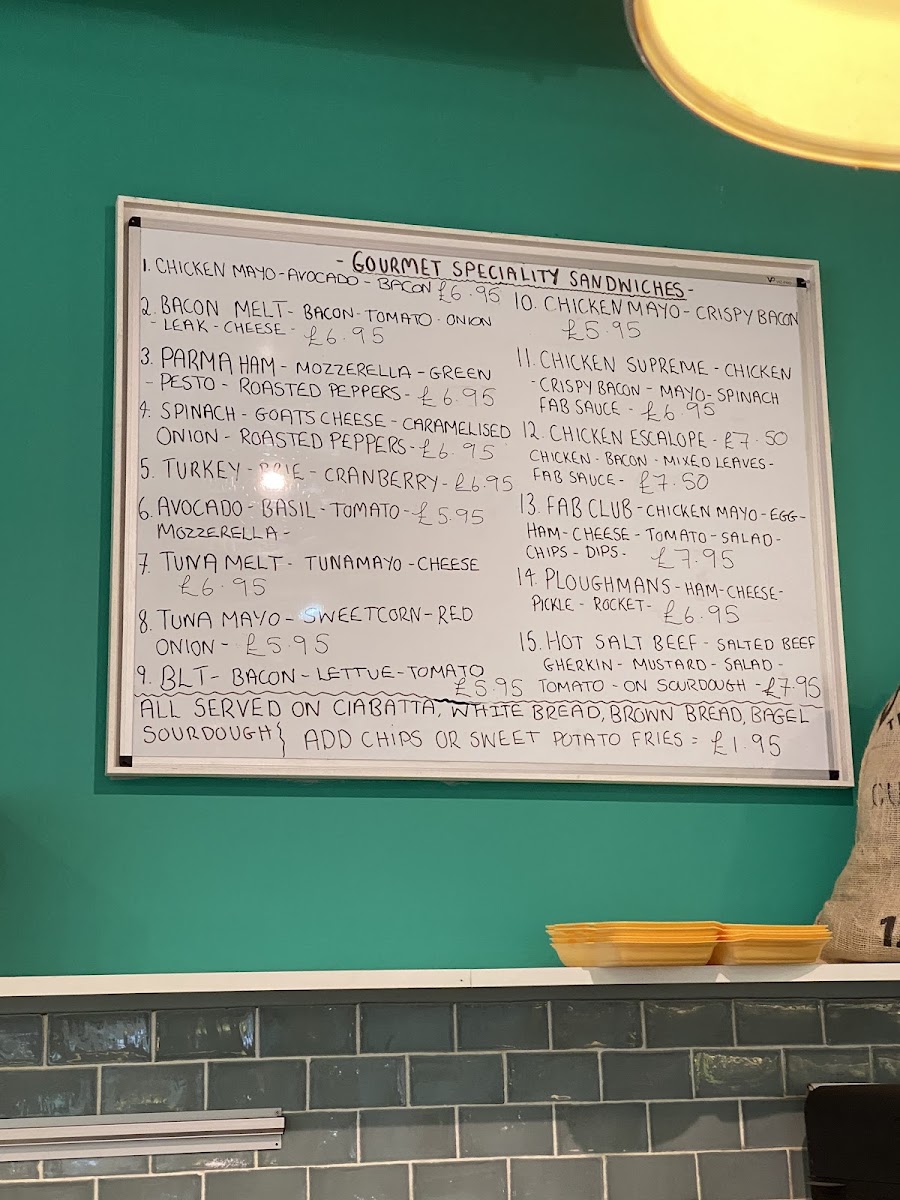 - GOURMET SPECIALITY SANDWICHES -
1. CHICKEN MAYO - AVOCADO - BACON £6.95
2. BACON MELT - BACON - TOMATO - ONION
- LEAK - CHEESE - £6.95
3. PARMA HAM - MOZZERELLA - GREEN
- PESTO - ROASTED PEPPERS - £6.95
4. SPINACH - GOATS CHEESE - CARAMELISED
ONION - ROASTED PEPPERS - £6.95
5. TURKEY - BRIE - CRANBERRY - £6.95
6. AVOCADO - BASIL - TOMATO - £5.95
MOZZERELLA -
7. TUNA MELT - TUNAMAYO - CHEESE
£6.95
8. TUNA MAYO - SWEETCORN - RED
ONION - £5.95
9. BLT - BACON - LETTUE - TOMATO
£5.95
10. CHICKEN MAYO - CRISPY BACON
£5.95
11. CHICKEN SUPREME - CHICKEN
- CRISPY BACON - MAYO - SPINACH
FAB SAUCE - £6.95
12. CHICKEN ESCALOPE - £7.50
CHICKEN - BACON - MIXED LEAVES -
FAB SAUCE - £7.50
13. FAB CLUB - CHICKEN MAYO - EGG -
HAM - CHEESE - TOMATO - SALAD -
CHIPS - DIPS - £7.95
14. PLOUGHMANS - HAM - CHEESE -
PICKLE - ROCKET - £6.95
15. HOT SALT BEEF - SALTED BEEF
GHERKIN - MUSTARD - SALAD -
TOMATO - ON SOURDOUGH - £7.95
ALL SERVED ON CIABATTA, WHITE BREAD, BROWN BREAD, BAGEL
SOURDOUGH} ADD CHIPS OR SWEET POTATO FRIES = £1.95